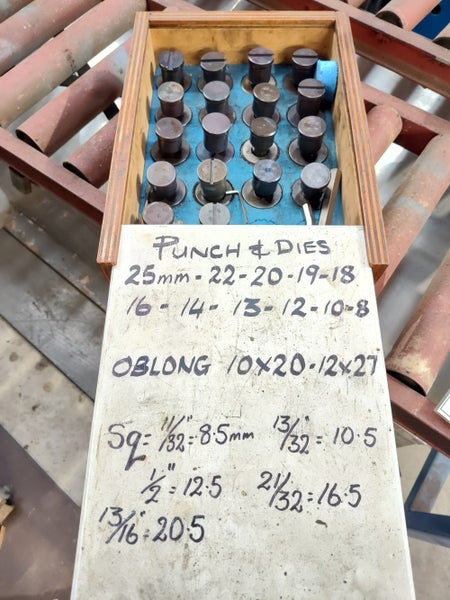 PUNCH & DIES
25mm - 22 - 20 - 19 - 18
16 - 14 - 13 - 12 - 10 - 8
OBLONG 10x20 - 12x27
Sq = 11/32" = 8.5mm 13/32" = 10.5
1/2" = 12.5 21/32 = 16.5
13/16" = 20.5